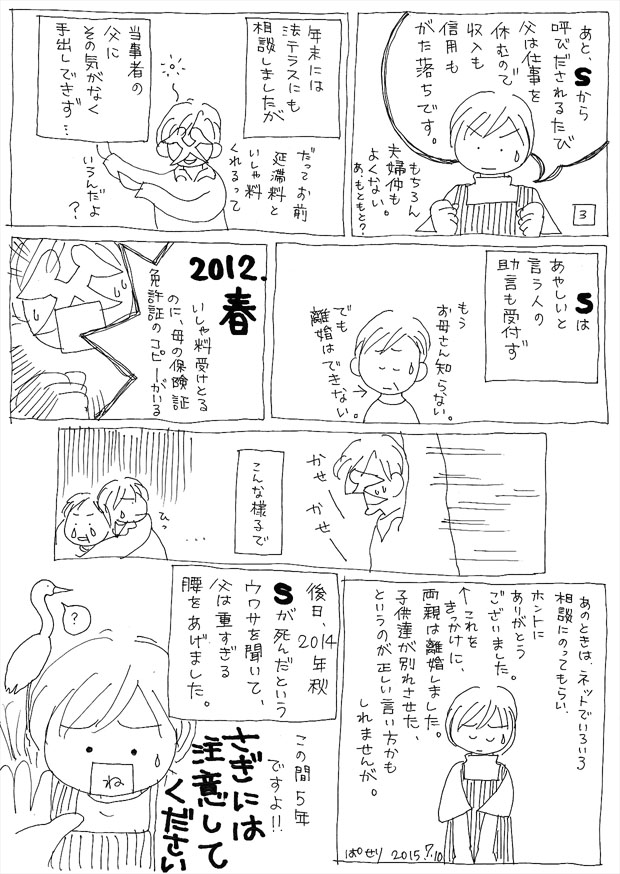 あと、Sから
呼びだされるたび
父は仕事を
休むので
収入も
信用も
がた落ちです。
もちろん
夫婦仲も
よくない。
あ、もともと？
3
年末には
法テラスにも
相談しましたが
当事者の
父に
その気がなく
手出しできず…
だってお前
延滞料と
いしゃ料
くれるって
いうんだよ
？
Sは
あやしいと
言う人の
助言も受付ず
もう
お母さん知らない。
でも
離婚はできない。
2012.
春
いしゃ料受けとる
のに、母の保険証
免許証のコピーがいる
かせ
かせ
こんな様子で
ひっ
…
あのときは、ネットでいろいろ
相談にのってもらい、
ホントに
ありがとう
ございました。
↑これを
きっかけに、
両親は離婚しました。
子供達が別れさせた、
というのが正しい言い方かも
しれませんが。
ぱせり 2015.7.10
後日、2014年秋
Sが死んだという
ウワサを聞いて、
父は重すぎる
腰をあげました。
この間5年
ですよ!!
？
ね
さぎには
注意して
ください